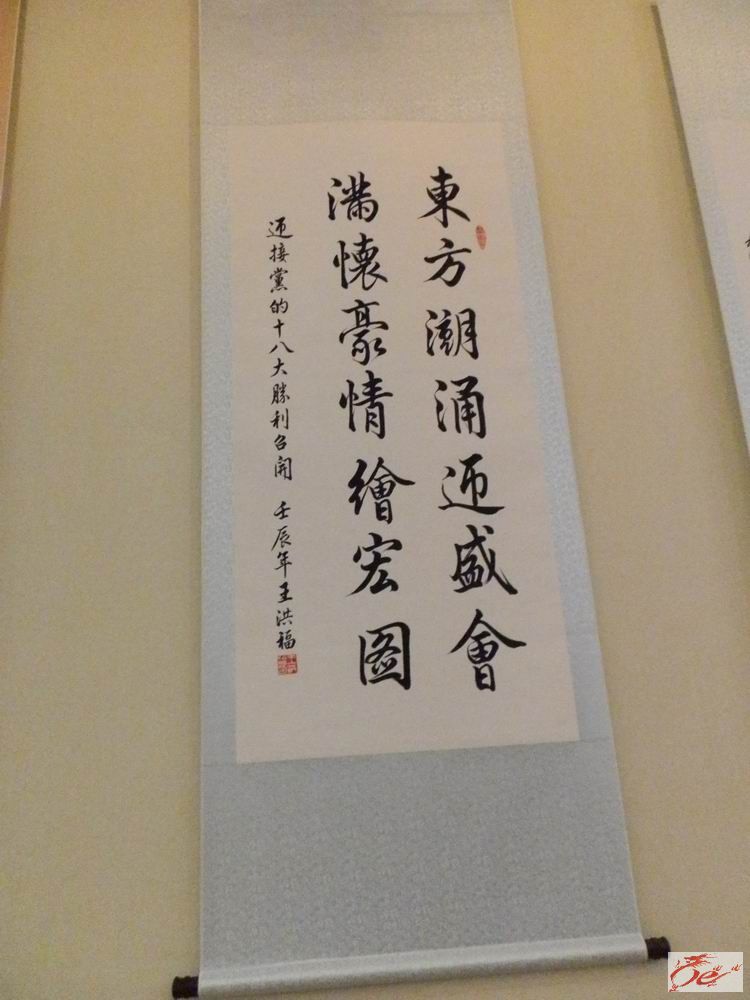 東方潮涌迎盛會
滿懷豪情繪宏图
迎接黨的十八大勝利召開 壬辰年王洪福